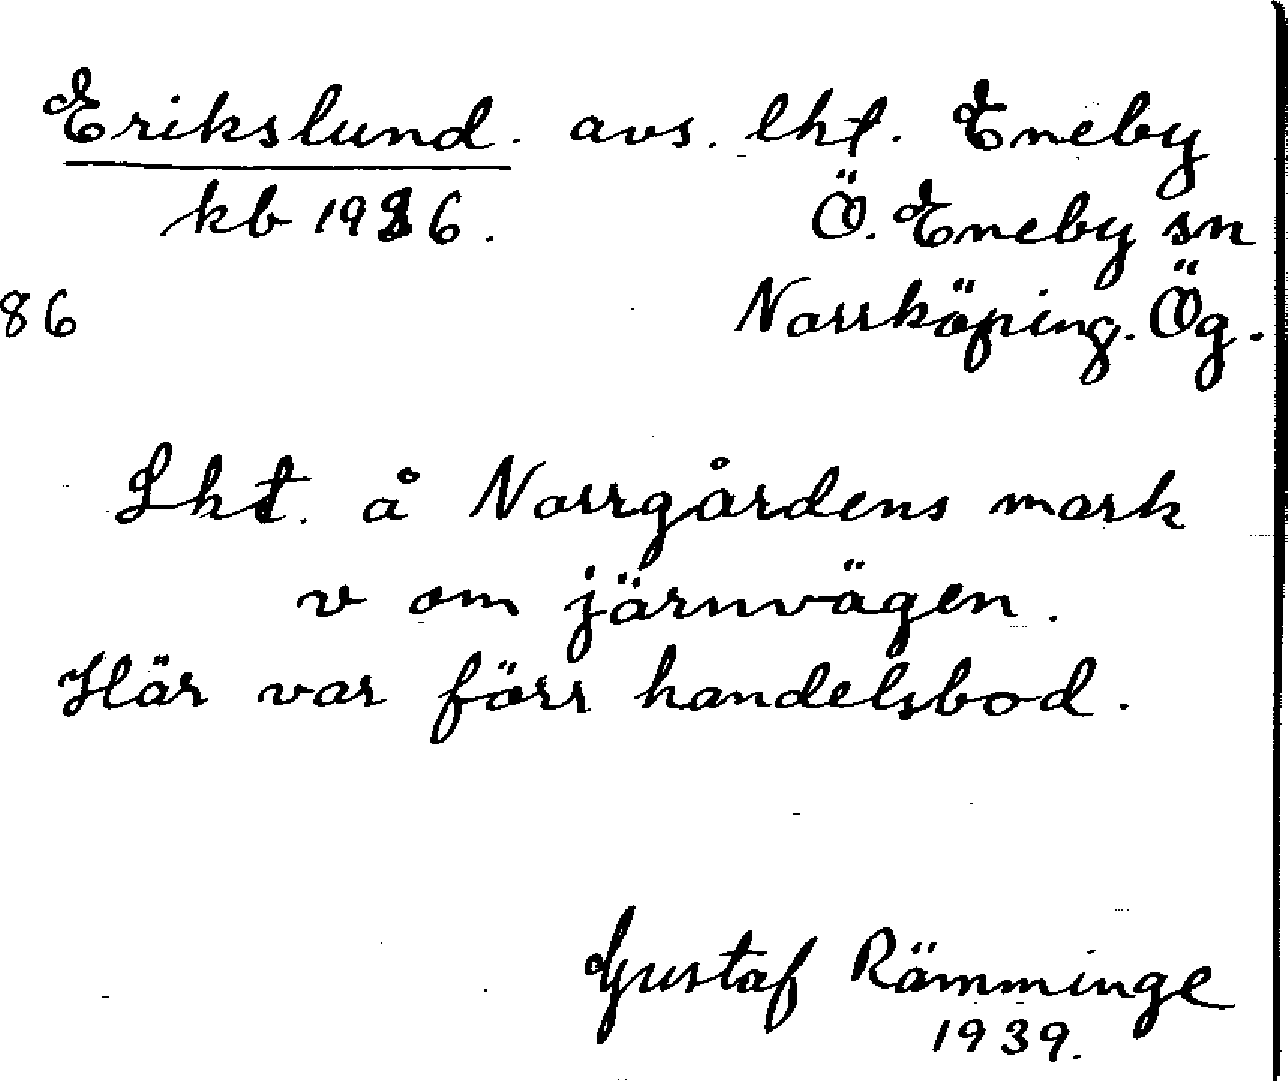 Erikslund. avs. lht. Eneby
kb 1926. Ö. Eneby sn
86 Norrköping. Ög.
Lht. å Norrgårdens mark
v om järnvägen.
Här var förr handelsbod.
Gustaf Rämminge
1939.